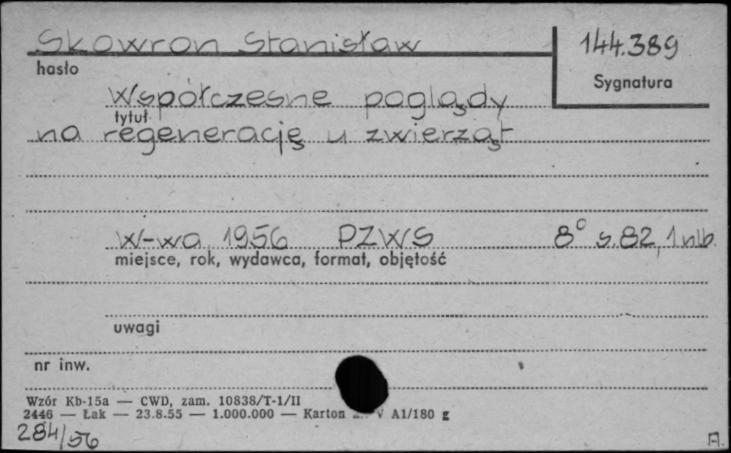 Skowron Stanisław
144.389
hasło
Sygnatura
Współczesne poglądy
tytuł
na regenerację u zwierząt
W-wa 1956 PZWS 8° s. 82, 1 nlb.
miejsce, rok, wydawca, format, objętość
uwagi
nr inw.
Wzór Kb-15a — CWD, zam. 10838/T-1/II
2446 — Łak — 23.8.55 — 1.000.000 — Karton V A1/180 g
284/56
A.